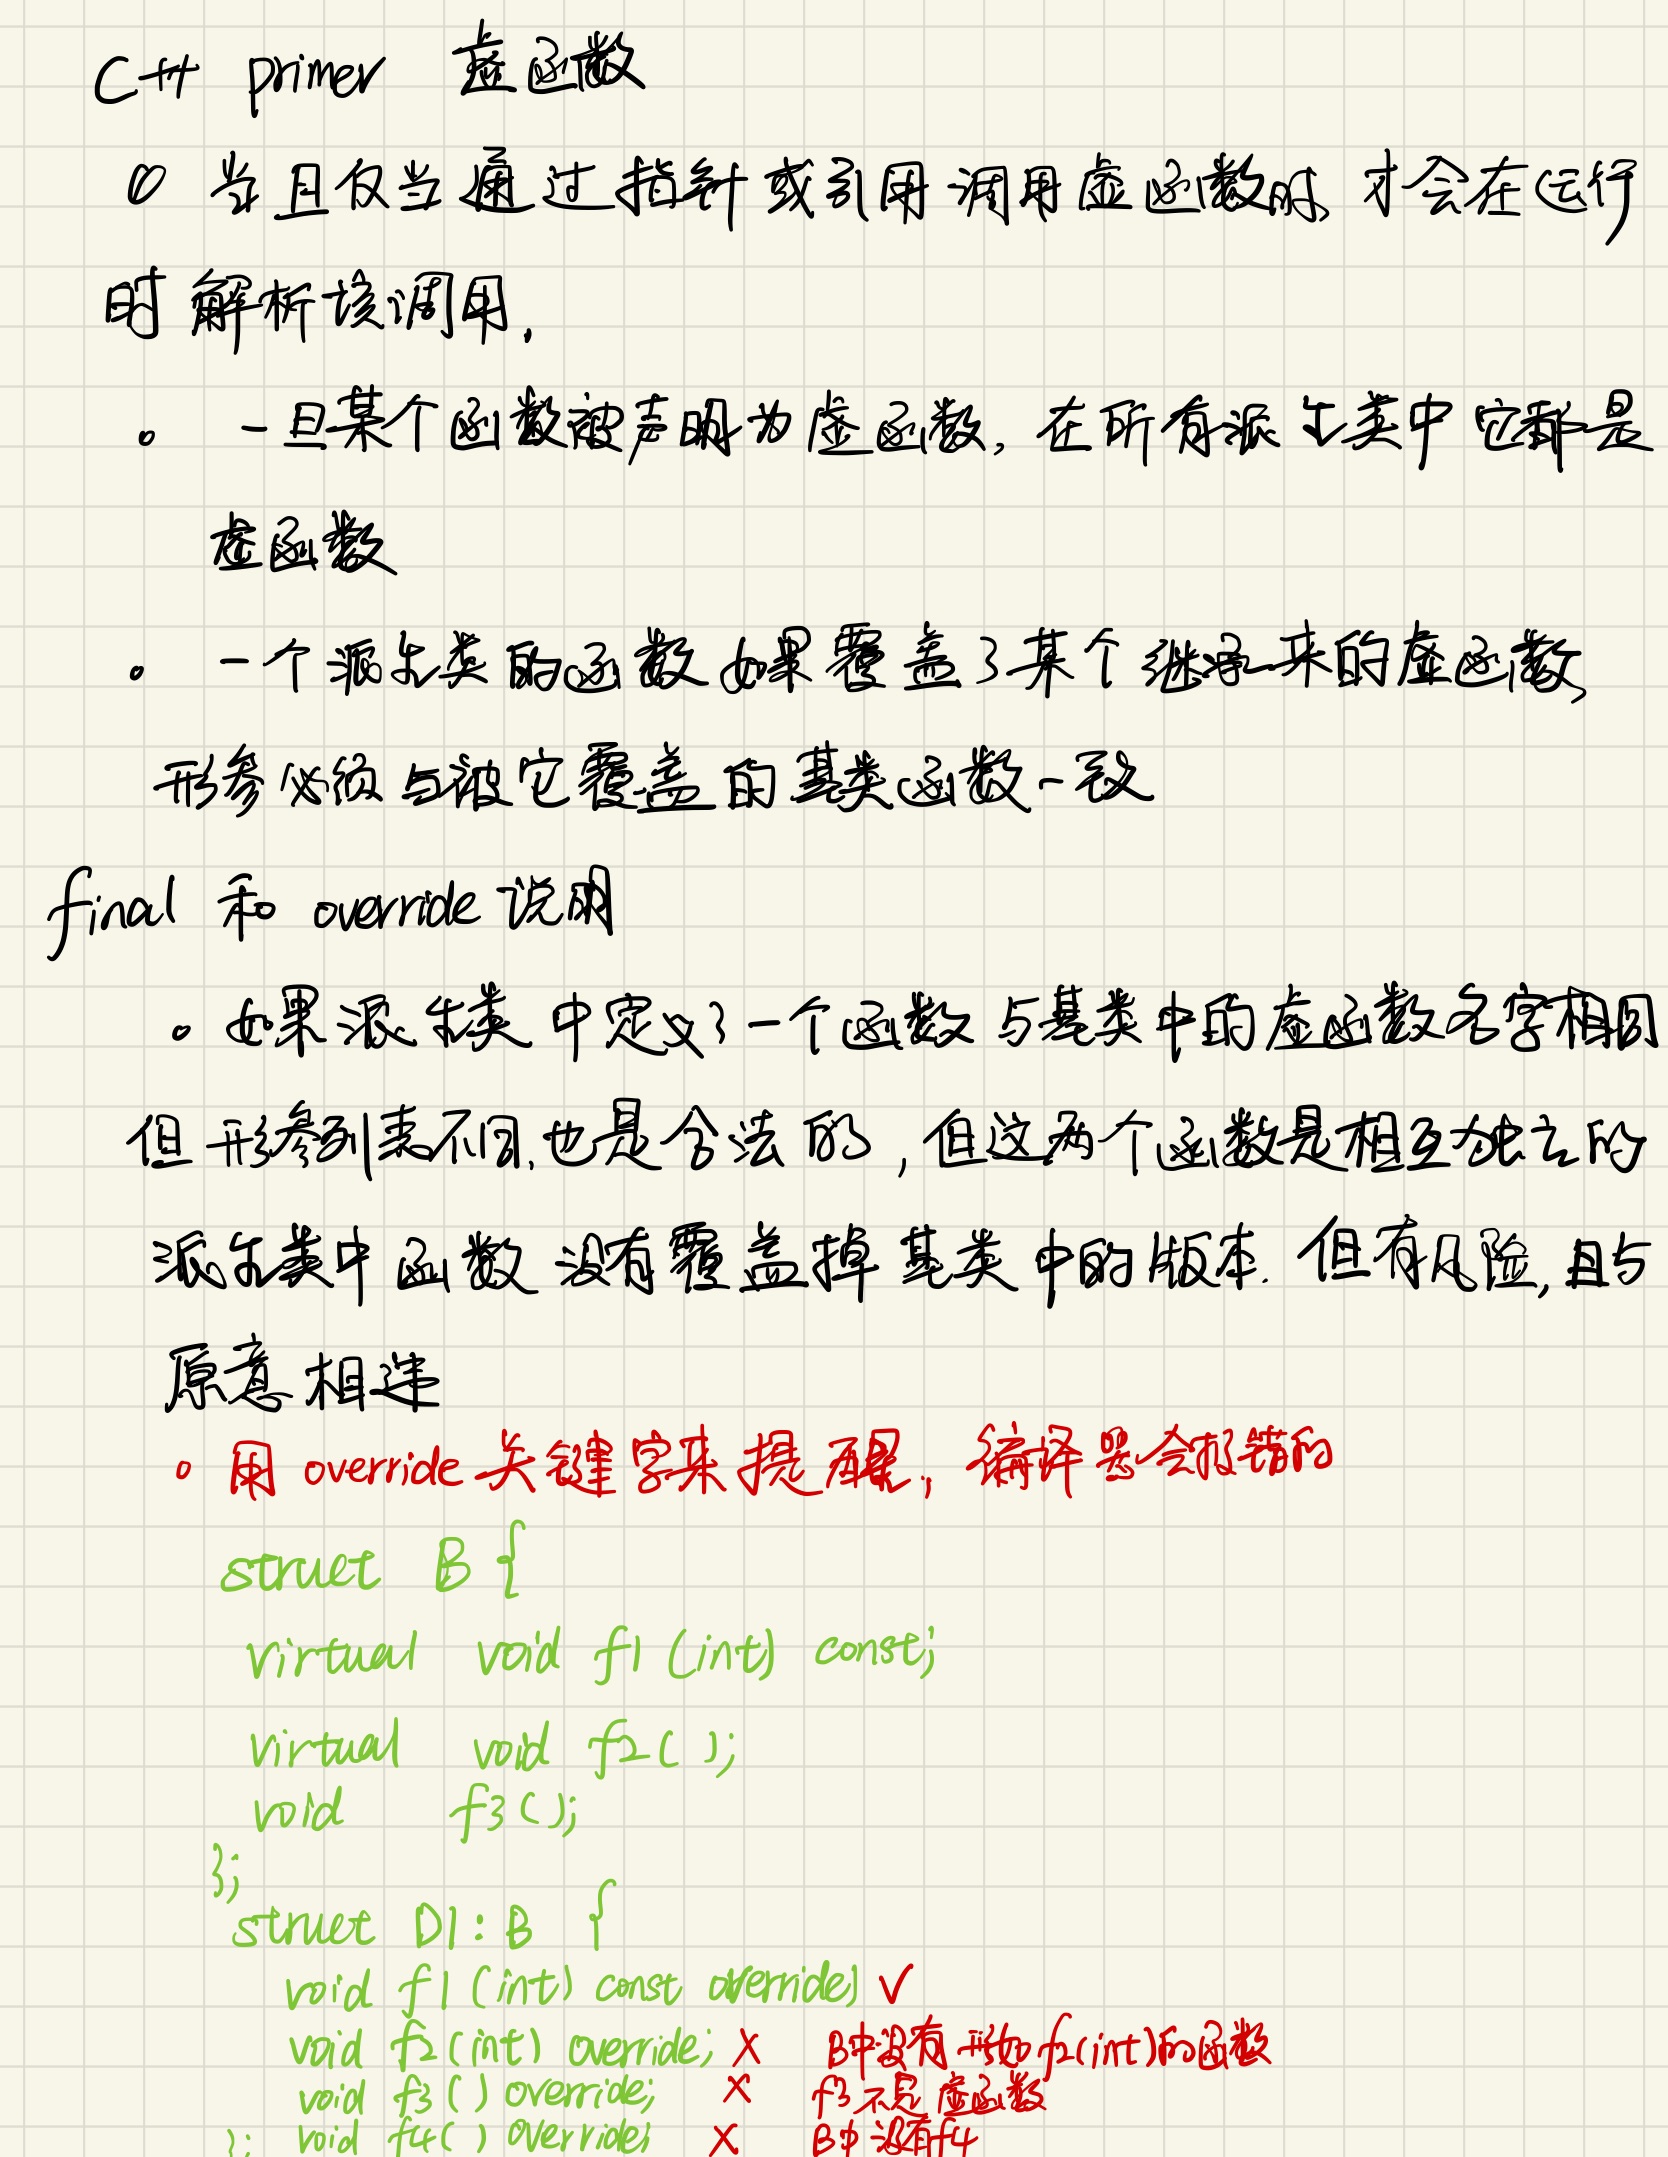 C++ primer 虚函数
。当且仅当通过指针或引用调用虚函数时,才会在运行
时解析该调用.
。一旦某个函数被声明为虚函数,在所有派生类中它都是
虚函数
。一个派生类的函数如果覆盖了某个继承来的虚函数,
形参必须与被它覆盖的基类函数一致
final 和 override 说明
。如果派生类中定义了一个函数与基类中的虚函数名字相同
但形参列表不同,也是合法的,但这两个函数是相互独立的
派生类中函数没有覆盖掉基类中的版本.但有风险,且与
原意相违
。用override关键字来提醒,编译器会报错的
struct B {
virtual void f1 (int) const;
virtual void f2( );
void f3( );
};
struct D1 : B {
void f1 (int) const override; ✓
void f2 (int) override; X B中没有形如f2(int)的函数
void f3 ( ) override; X f3不是虚函数
}; void f4( ) override; X B中没有f4